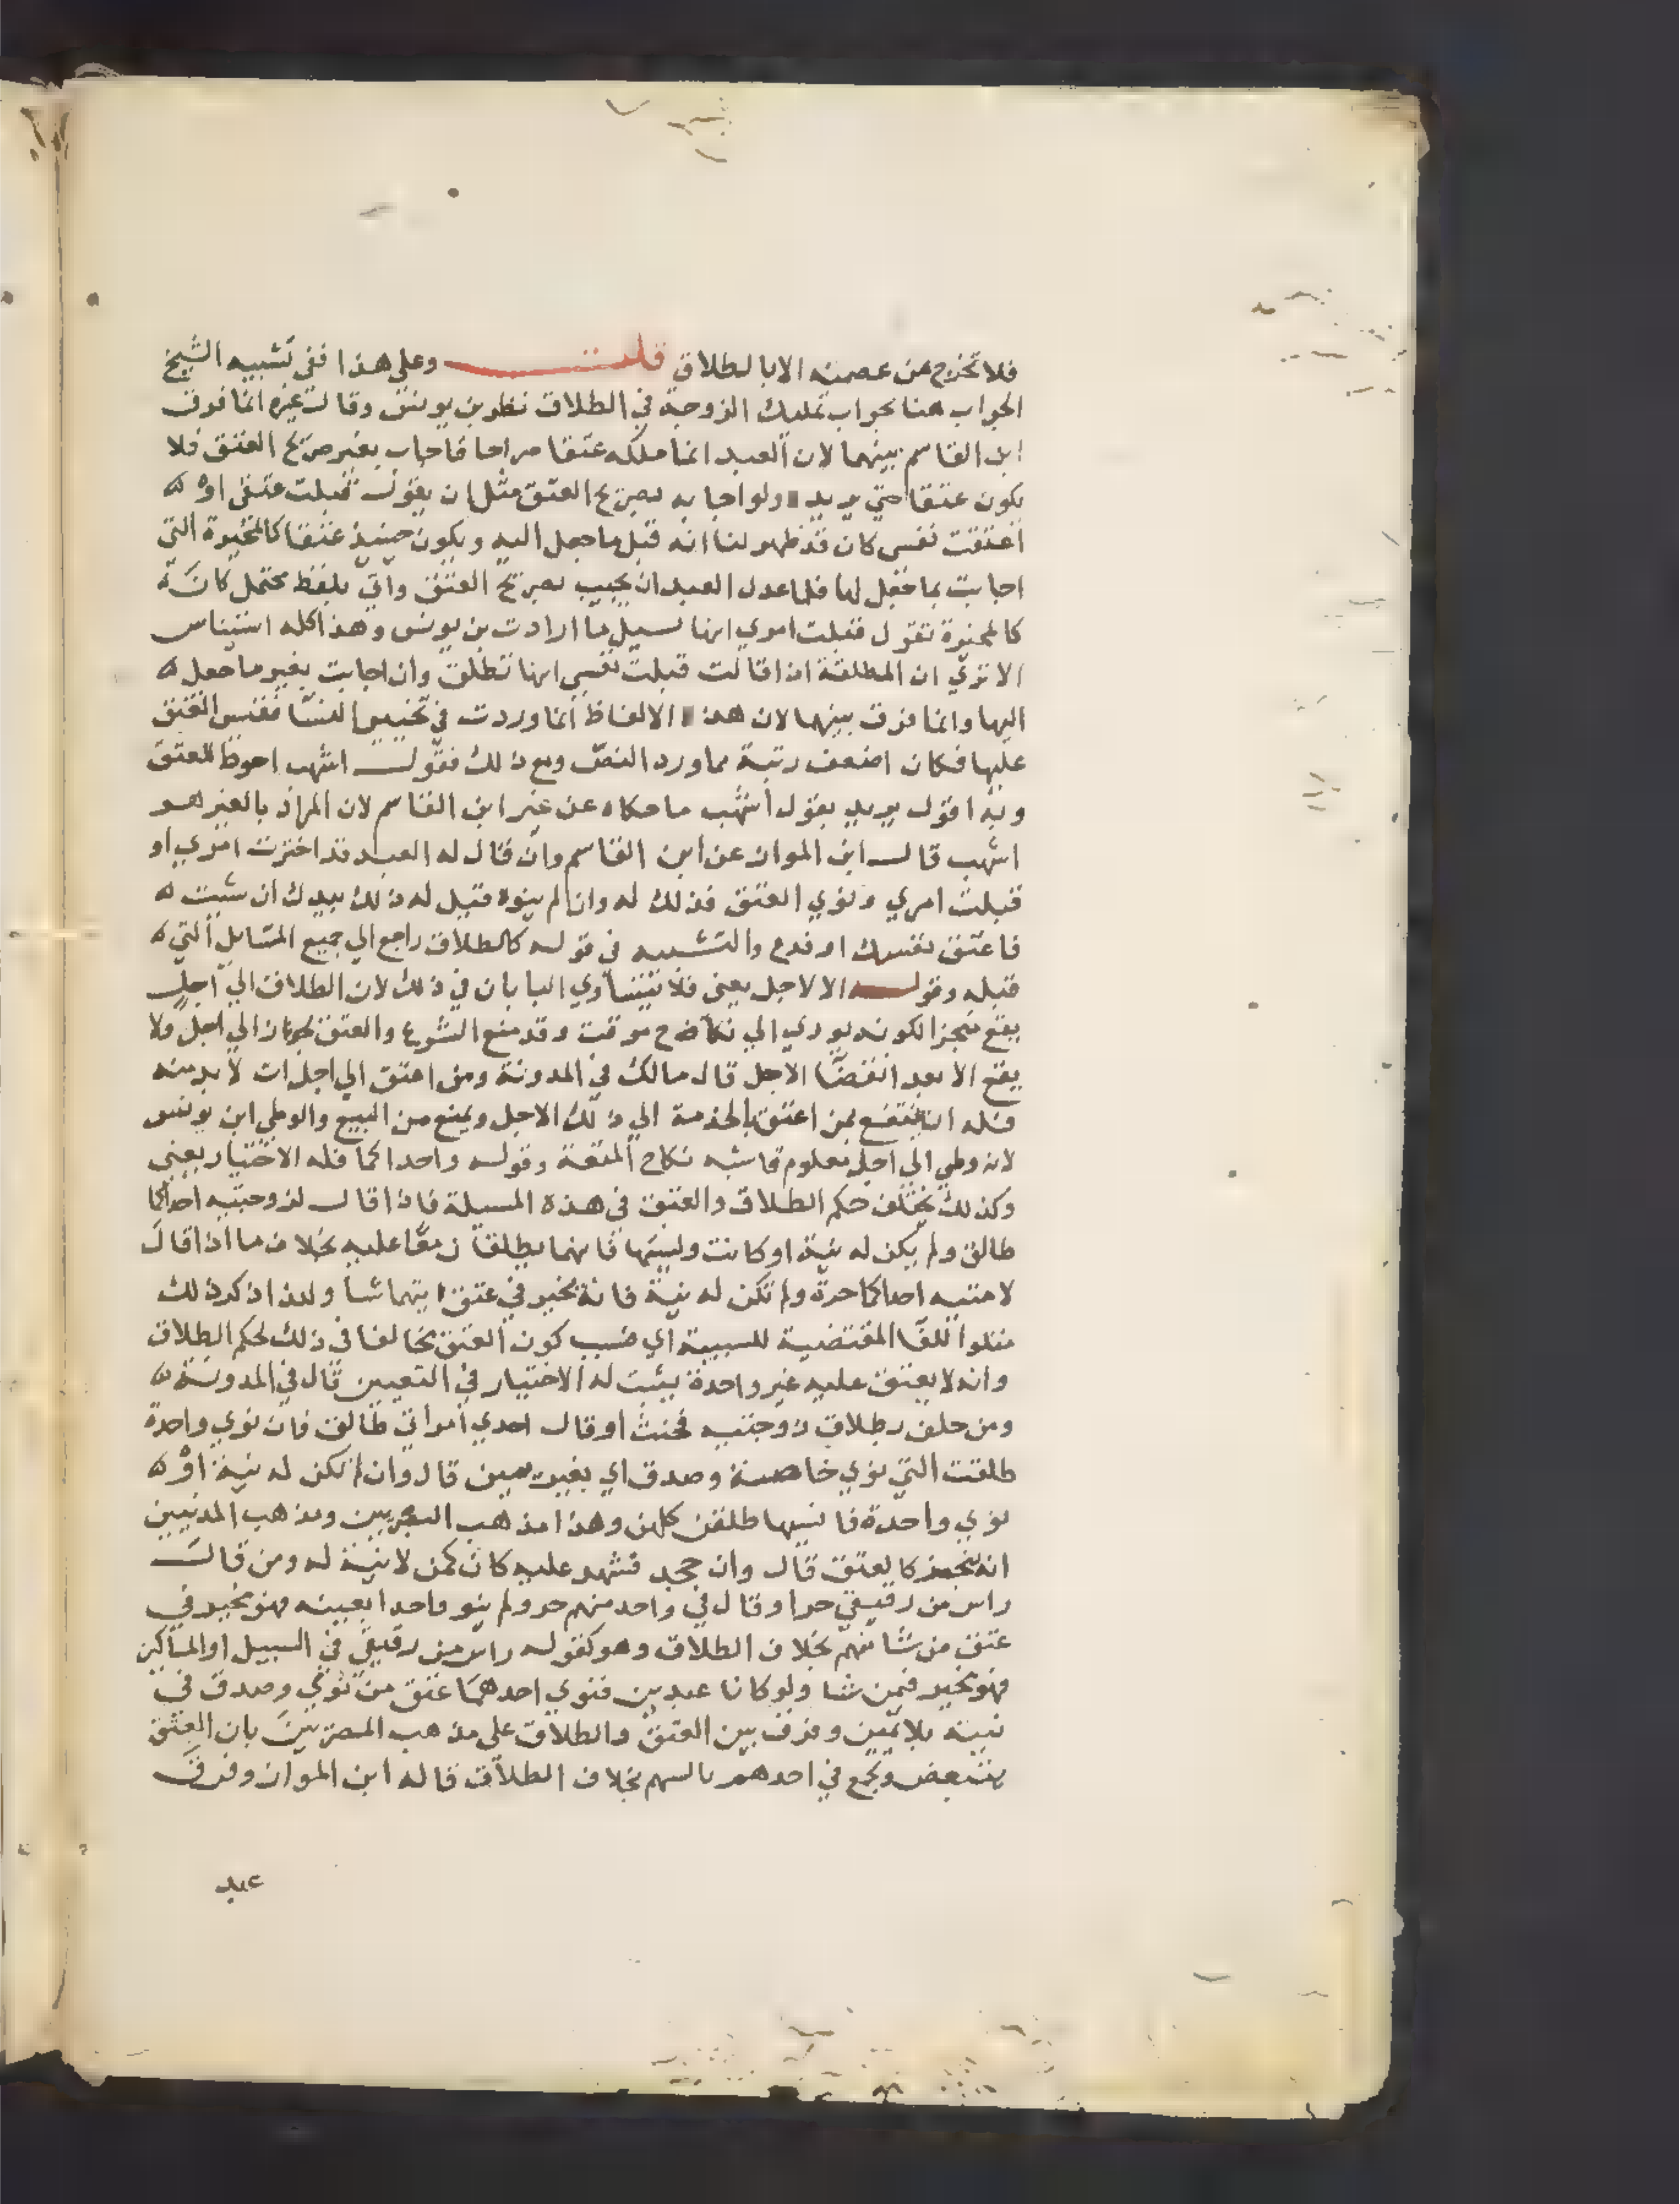 فلا تخرج من عصمته الا بالطلاق قلت وعلى هذا ففي تشبيه الشيخ
الجواب هنا بجواب تمليك الزوجة في الطلاق نظر بن يونس وقال غيره انما فرق
ابن القاسم بينهما لان العبد انما ملكه عتقا صراحا فاجاب بغير صريح العتق فلا
يكون عتقا حتي يريده ولو اجابه بصريح العتق مثل ان يقول قبلت عتقي او
اعتقت نفسي كان قد ظهر لنا انه قبل ما جعل اليه ويكون حينيذ عتقا كالمخيرة التي
اجابت بما جعل لها فلما عدل العبد ان يجيب بصريح العتق واتي بلفظ محتمل كان
كالمخيرة تقول قبلت امري انها تسيل ما ارادت بن يونس وهذا كله استيناس
الا تري ان المطلقة اذا قالت قبلت نفسي انها تطلق وان اجابت بغير ما جعل
اليها وانما فرق بينهما لان هذه الالفاظ انما وردت في تخيير النسا فقيس العتق
عليها فكان اضعف رتبة مما ورد النص ومع ذلك فقول اشهب احوط للعتق
وبه اقول يريد بقول اشهب ما حكاه عن غير ابن القاسم لان المراد بالغير هو
اشهب قال ابن المواز عن ابن القاسم وان قال له العبد قد اخترت امري او
قبلت امري ونوي العتق فذلك له وان لم ينوه قيل له ذلك بيدك ان شيت
فاعتق نفسك او فدع والتشبيه في قوله كالطلاق راجع الي جميع المسايل التي
قبله وقوله الا لاجل يعني فلا يتساوي البابان في ذلك لان الطلاق الي اجل
يقع منجزا لكونه يودي الي نكاح موقت وقد منع الشرع والعتق يجوز الي اجل ولا
يقع الا بعد انقضا الاجل قال مالك في المدونة ومن اعتق الي اجل ات لا بد منه
فله ان ينتفع بمن اعتق بالخدمة الي ذلك الاجل ويمنع من البيع والوطي ابن يونس
لانه وطي الي اجل معلوم فاشبه نكاح المتعة وقوله واحداكما فله الاختيار يعني
وكذلك يختلف حكم الطلاق والعتق في هذه المسيلة فاذا قال لزوجتيه احداكما
طالق ولم يكن له نية او كانت ونسيها فانهما يطلقان معا عليه بخلاف ما اذا قال
لامتيه احداكما حرة ولم تكن له نية فانه يخير في عتق ايتهما شا ولهذا ذكر ذلك
متلوا للفا المقتضية للسببية اي فسبب كون العتق مخالفا في ذلك لحكم الطلاق
وانه لا يعتق عليه غير واحدة يثبت له الاختيار في التعيين قال في المدونة
ومن حلف بطلاق زوجتيه فحنث او قال احدي امراتي طالق فان نوي واحدة
طلقت التي نوي خاصة وصدق اي بغير يمين قال وان لم تكن له نية او
نوي واحدة فانسيها طلقن كلهن وهذا مذهب المصريين ومذهب المدنيين
انه يخير كالعتق قال وان جحد فشهد عليه كان كمن لا نية له ومن قال
راس من رقيقي حر او قال في واحد منهم حر ولم ينو واحدا بعينه فهو مخير في
عتق من شا منهم بخلاف الطلاق وهو كقوله راس من رقيقي في السبيل او المساكين
فهو مخير فيمن شا ولو كانا عبدين فنوي احدهما عتق من نوي وصدق في
نيته بلا يمين وفرق بين العتق والطلاق على مذهب المصريين بان العتق
يتبعض ويجمع في احدهم بالسهم بخلاف الطلاق قاله ابن المواز وفرق
عبد